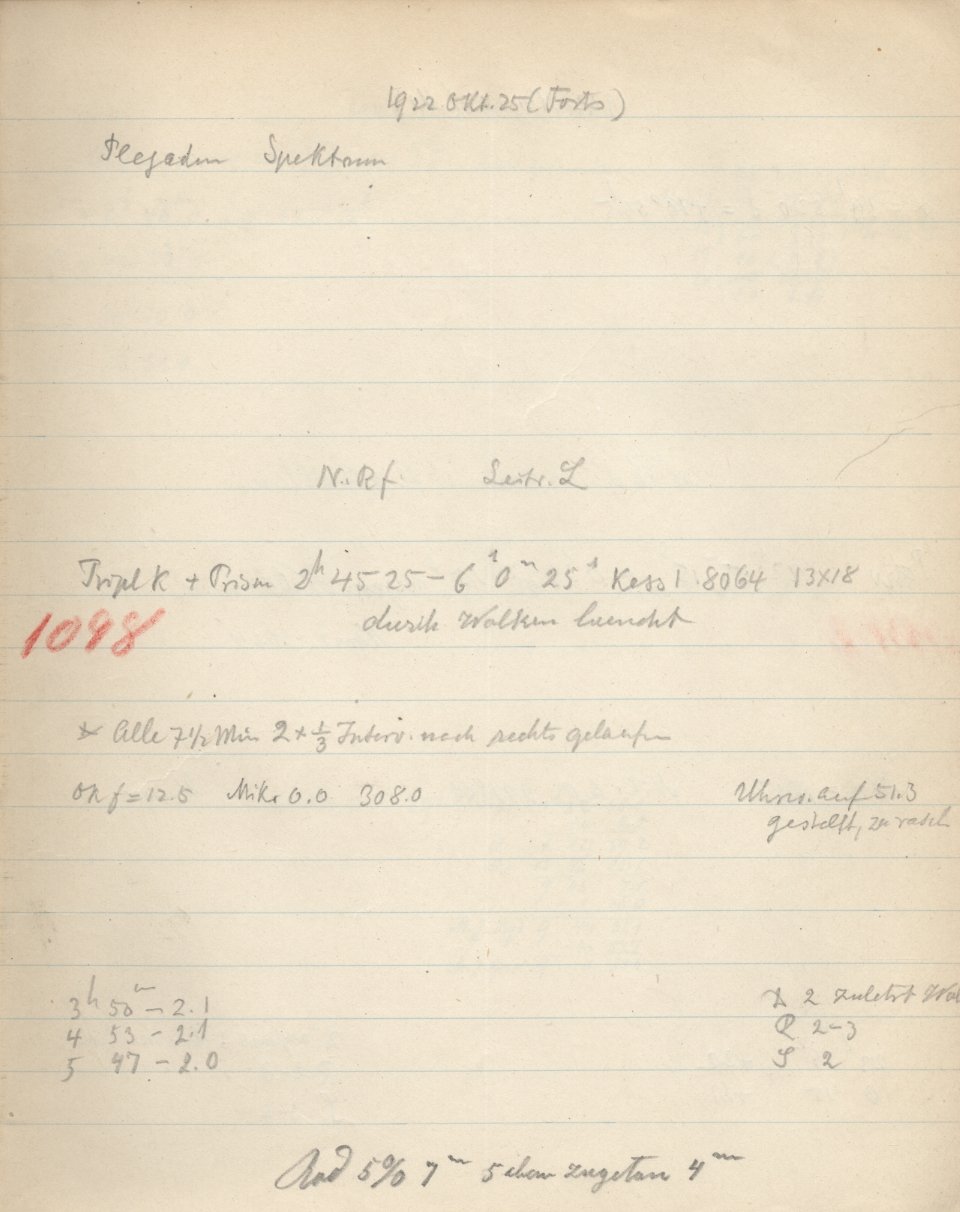 1922 Okt. 25 (Forts)
Plejaden Spektrum
N. Rf. Leitr. L
Tripl K + Prism 2h 45 25 – 6h 0m 25s Kess 1 8064 13x18
1098
durch Wolken
* Alle 7 1/2 Min 2 x 1/3 Interv. nach rechts gelaufen
Ok f = 12.5 Mikr 0.0 308.0
Uhrw. auf 51.3
gestellt, zu rasch
3h 50m – 2.1
4 53 – 2.1
5 47 – 2.0
2 zuletzt Wol
R 2–3
S 2
5% 7m 5 zugetan 4m